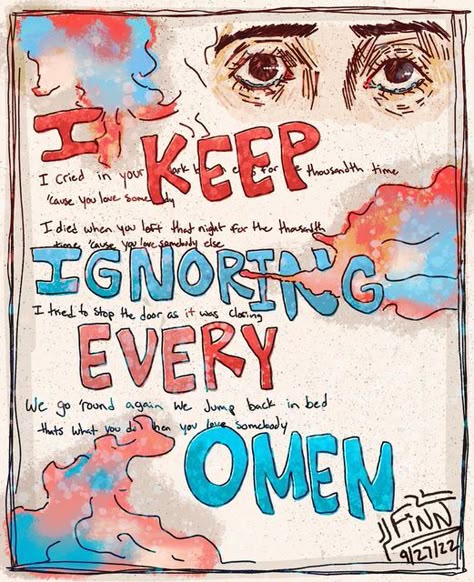 I
KEEP
I cried in your dark b e s for e thousandth time
'cause you love some dy
I died when you left that night for the thousandth
time 'cause you love somebody else
IGNORING
I tried to stop the door as it was closing
EVERY
We go 'round again We Jump back in bed
thats what you do hen you love somebody
OMEN
FiNN
9/27/22